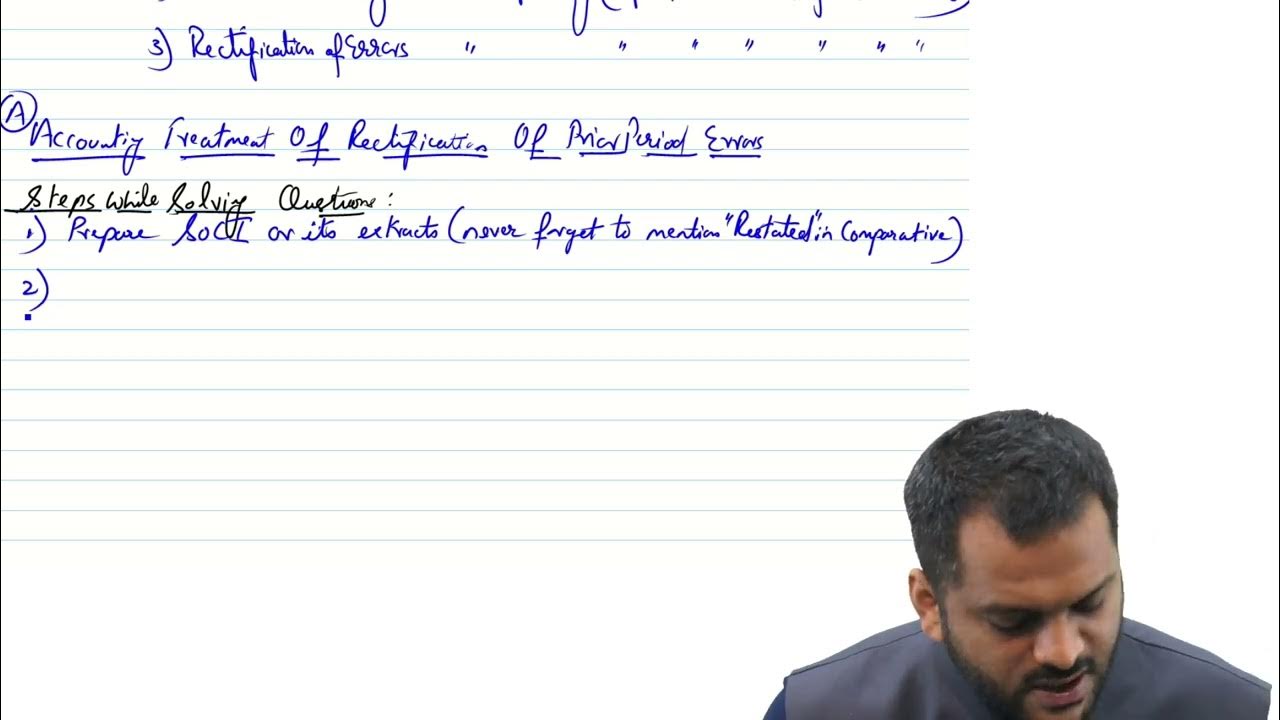 3) Rectification of Errors " " " " " " "
A
Accounting Treatment Of Rectification Of Prior Period Errors
Steps while Solving Questions :
1) Prepare SOCI or its extracts (never forget to mention "Restated" in Comparative)
2)